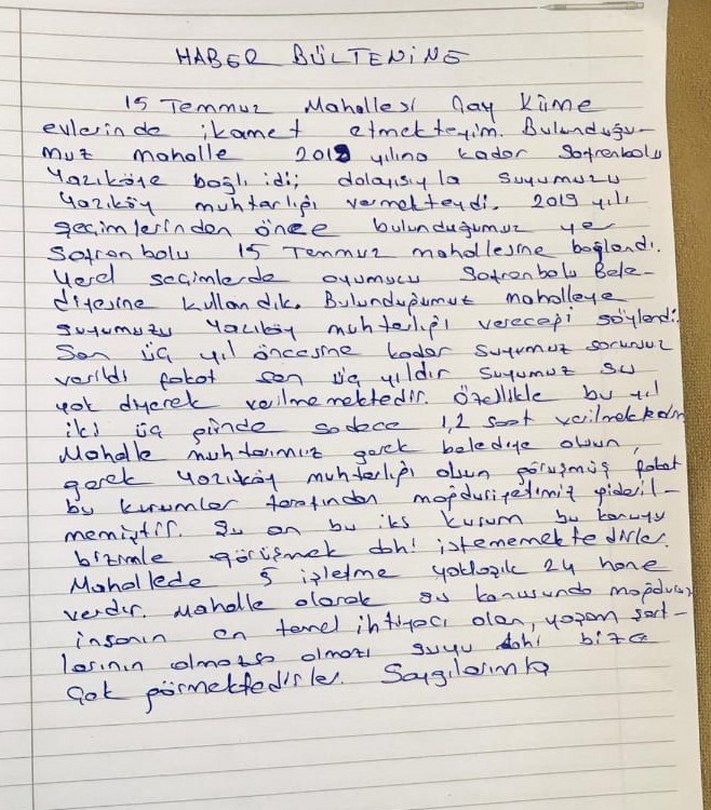 HABER BÜLTENİNE
15 Temmuz Mahallesi Çay Küme
evlerinde ikamet etmekteyim. Bulunduğu-
muz mahalle 2019 yılına kadar Safranbolu
Yazıköye bağlı idi; dolayısıyla suyumuzu
Yazıköy muhtarlığı vermekteydi. 2019 yılı
seçimlerinden önce bulunduğumuz yer
Safranbolu 15 Temmuz mahallesine bağlandı.
Yerel seçimlerde oyumuzu Safranbolu Bele-
diyesine kullandık. Bulunduğumuz mahalleye
suyumuzu Yazıköy muhtarlığı vereceği söylendi.
Son üç yıl öncesine kadar suyumuz sorunsuz
verildi fakat son üç yıldır suyumuz su
yok diyerek verilmemektedir. Özellikle bu yıl
iki üç günde sadece 1,2 saat verilmektedir
Mahalle muhtarımız gerek belediye olsun,
gerek Yazıköy muhtarlığı olsun görüşmüş fakat
bu kurumlar tarafından mağduriyetimiz gideril-
memiştir. Şu an bu iki kurum bu konuyu
bizimle görüşmek dahi istememektedirler.
Mahallede 5 işletme yaklaşık 24 hane
vardır. Mahalle olarak su konusunda mağduruz
insanın en temel ihtiyacı olan, yaşam şart-
larının olmazsa olmazı suyu dahi bize
çok görmektedirler. Saygılarımla